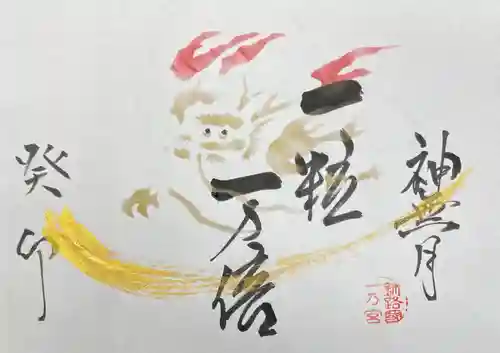 神無月
一粒
一万倍
癸卯
釧路國
一乃宮